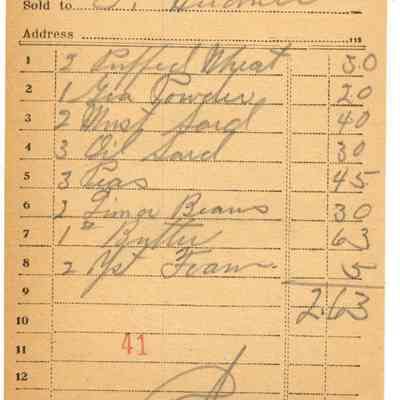 Sold to
Address
1 2 Puffed Wheat 30
2 1 Powder 20
3 2 Must Sard 40
4 3 Oil Sard 30
5 3 Peas 45
6 2 Lima Beans 30
7 1# Butter 63
8 2 Yst Foam 5
9 2.63
10
11 41
12